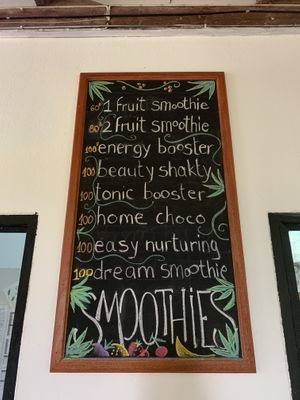 60 1 fruit smoothie
80 2 fruit smoothie
100 energy booster
100 beauty shakty
100 tonic booster
100 home choco
100 easy nurturing
100 dream smoothie
SMOOTHIES